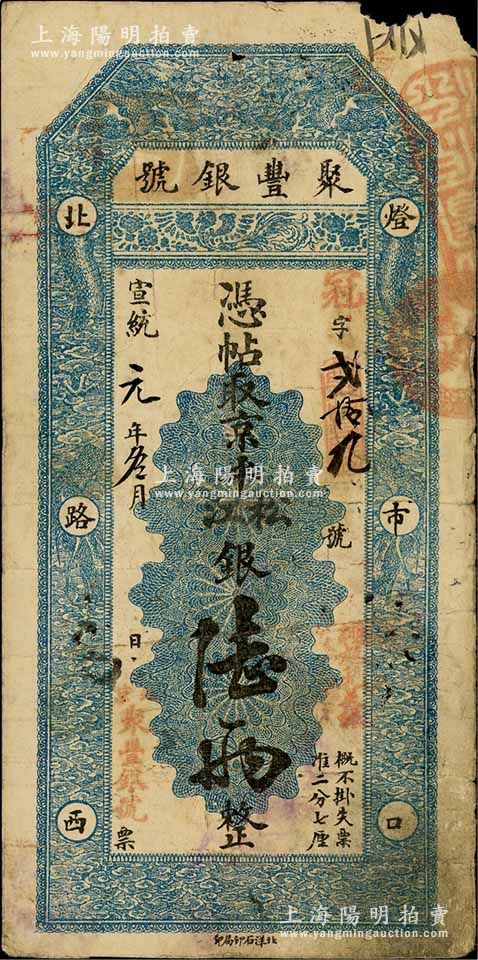 上海陽明拍賣
www.yangmingauction.com
聚豐銀號
燈市口
北路西
字貳拾九號
憑帖取京平松江銀陸兩整
宣統元年 月 日
聚豐銀號票
概不掛失票
准二分七厘
上海陽明拍賣
www.yangmingauction.com
上海陽明拍賣
www.yangmingauction.com
北洋石印局印